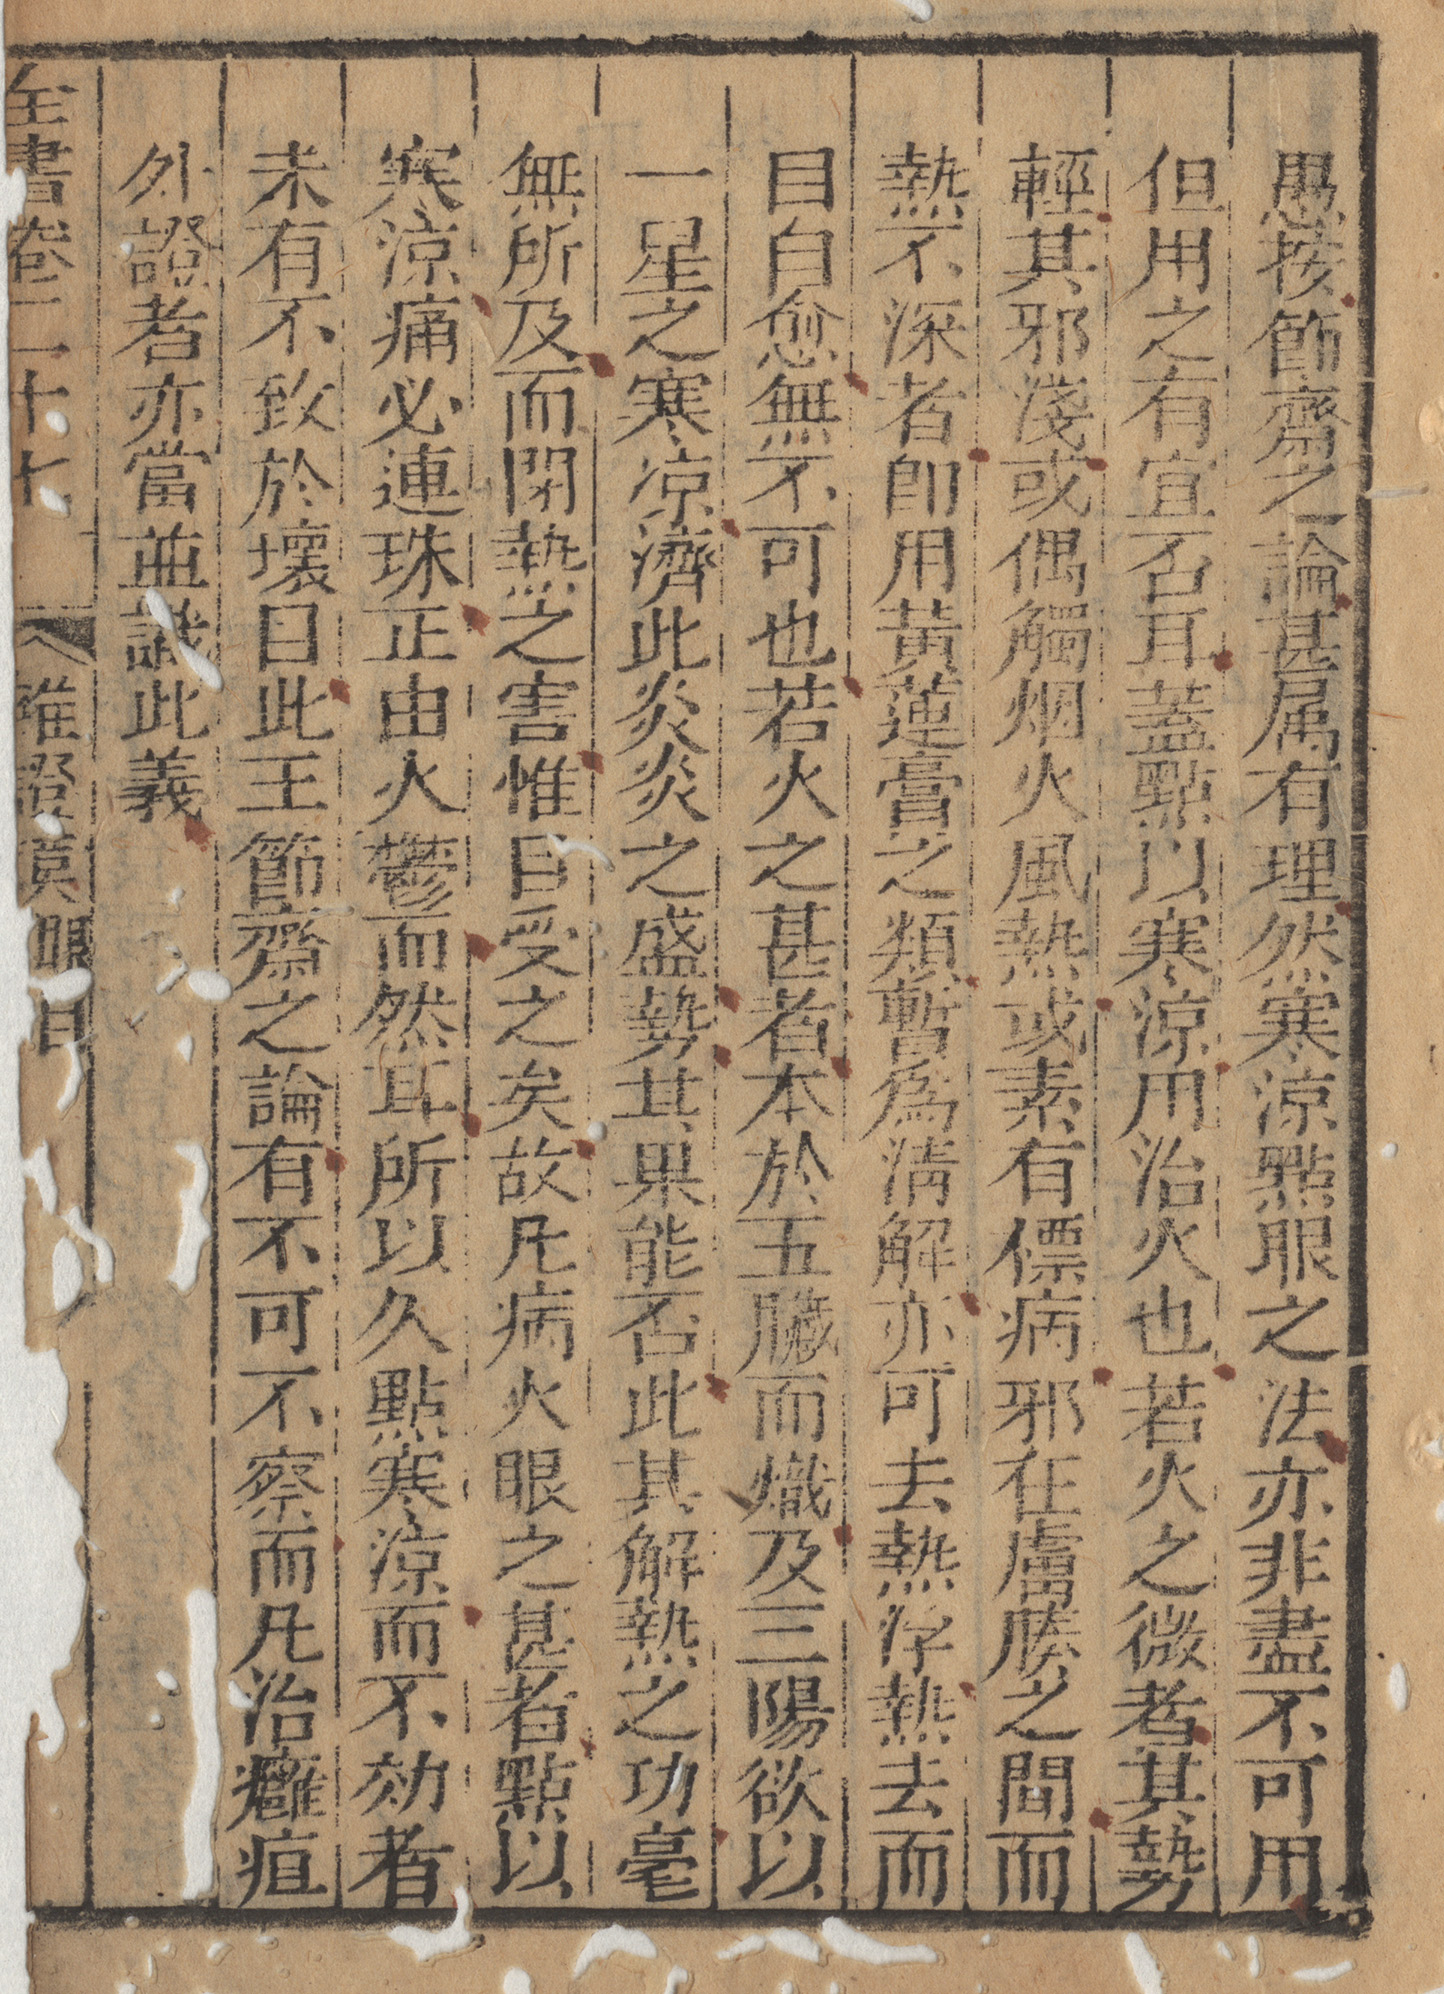 愚按節齋之論甚属有理然寒涼㸃眼之法亦非盡不可用
但用之有宜否耳葢㸃以寒涼用治火也若火之微者其勢
輕其邪淺或偶觸烟火風熱或素有標病邪在膚腠之間而
熱不深者卽用黃連膏之類暫爲清解亦可去熱浮熱去而
目自愈無不可也若火之甚者本於五臟而熾及三陽欲以
一星之寒凉濟此炎炎之盛勢其果能否此其解熱之功毫
無所及而閉熱之害惟目受之矣故凡病火眼之甚者點以
寒涼痛必連珠正由火鬱而然耳所以久點寒涼而不効者
未有不致於壞目此王節齋之論有不可不察而凡治癰疽
外證者亦當並識此義
全書卷二十七 雜證謨眼目